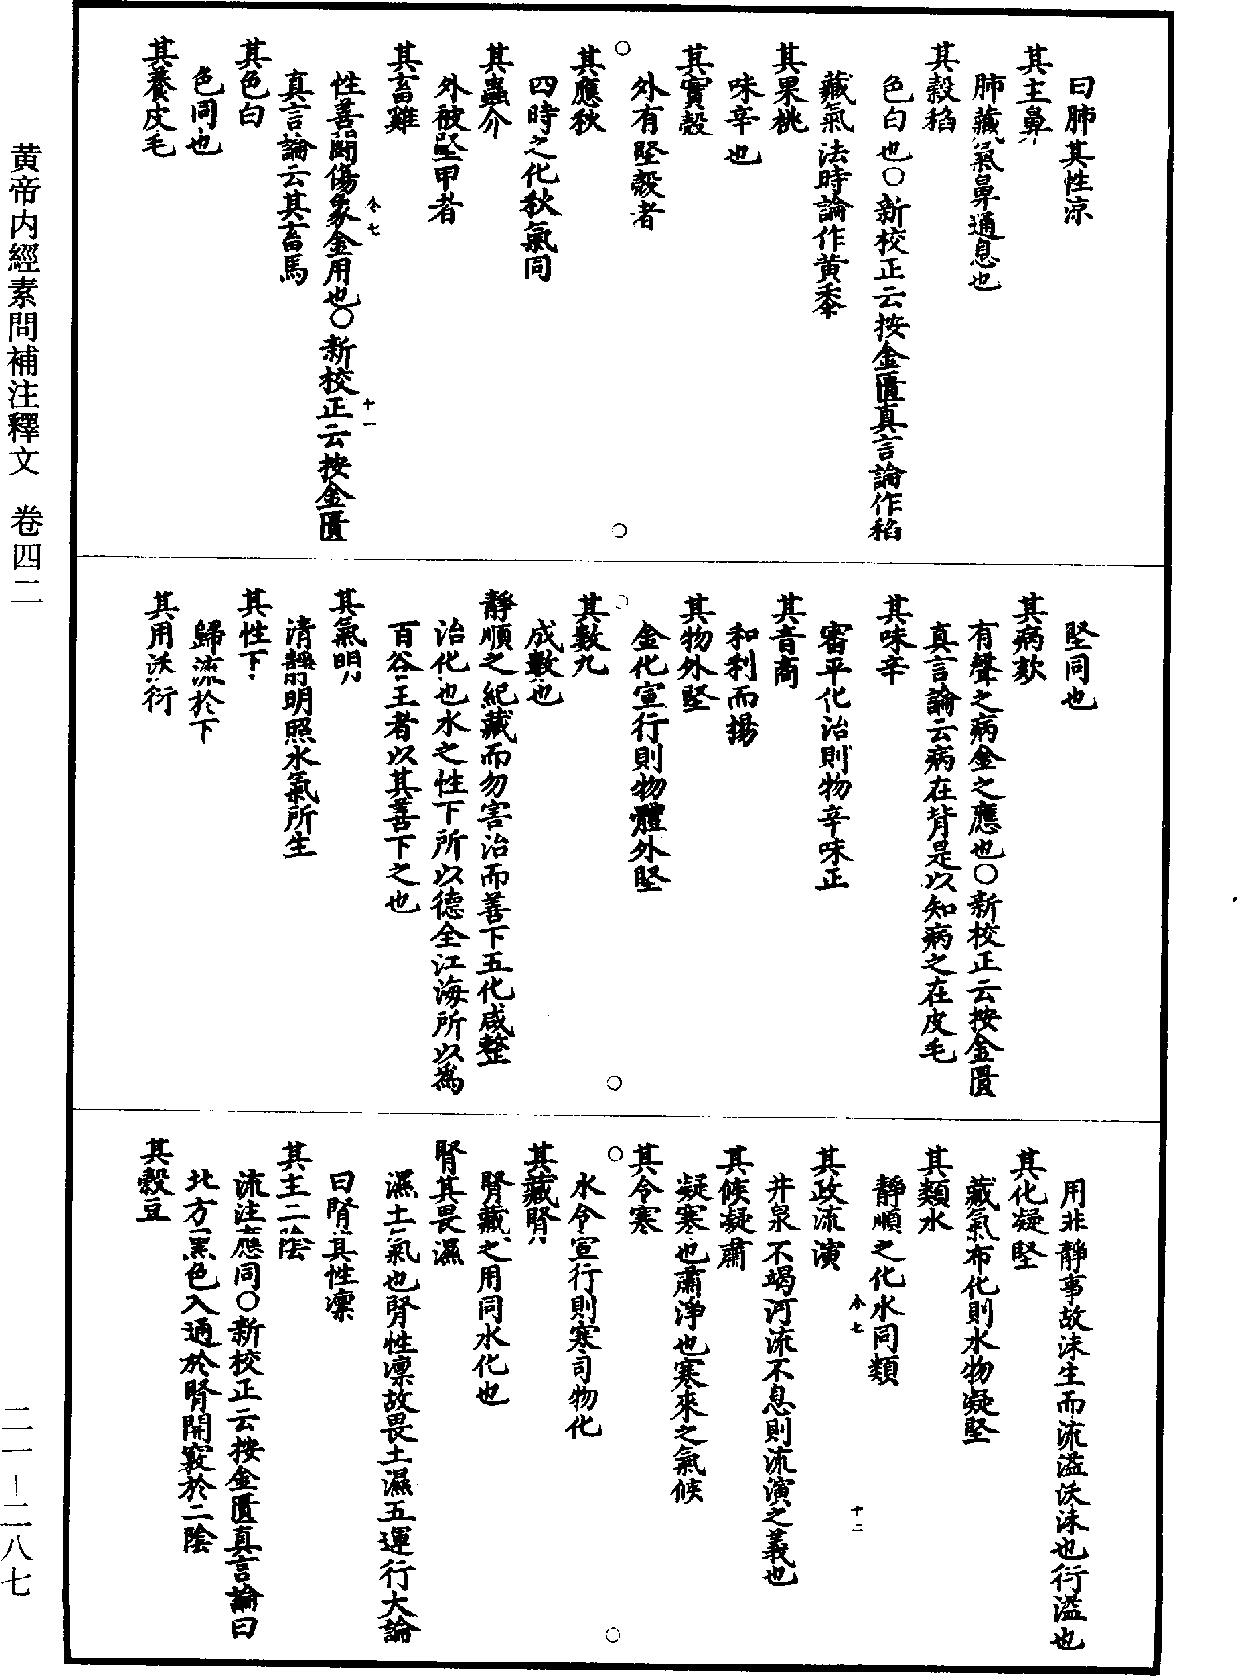 曰肺其性涼
其主鼻
肺藏氣鼻通息也
其穀稻
色白也○新校正云按金匱真言論作稻
藏氣法時論作黃黍
其果桃
味辛也
其實殼
外有堅殼者
其應秋
四時之化秋氣同
其蟲介
外被堅甲者
其畜雞
性善鬬傷象金用也○新校正云按金匱
真言論云其畜馬
其色白
色同也
其養皮毛
堅同也
其病欬
有聲之病金之應也○新校正云按金匱
真言論云病在背是以知病之在皮毛
其味辛
審平化治則物辛味正
其音商
和利而揚
其物外堅
金化宣行則物體外堅
其數九
成數也
靜順之紀藏而勿害治而善下五化咸整
治化也水之性下所以德全江海所以為
百谷王者以其善下之也
其氣明
清靜明照水氣所生
其性下
歸流於下
其用沃衍
用非靜事故沫生而流溢沃沫也衍溢也
其化凝堅
藏氣布化則水物凝堅
其類水
靜順之化水同類
其政流演
井泉不竭河流不息則流演之義也
其候凝肅
凝寒也肅淨也寒來之氣候
其令寒
水令宣行則寒司物化
其藏腎
腎藏之用同水化也
腎其畏濕
濕土氣也腎性凛故畏土濕五運行大論
曰腎其性凛
其主二陰
流注應同○新校正云按金匱真言論曰
北方黑色入通於腎開竅於二陰
其穀豆
黃帝內經素問補注釋文　卷四二
二一－二八七
仐七
十一
仐七
十二